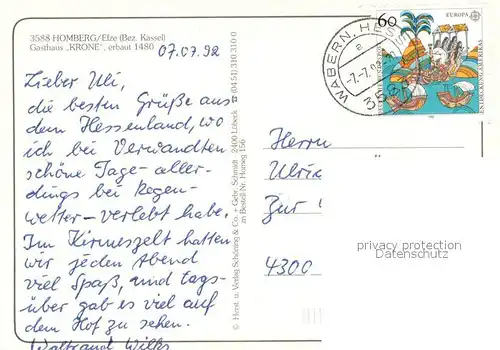 3588 HOMBERG/Efze (Bez. Kassel)
Gasthaus „KRONE", erbaut 1480
07.07.92
Lieber Uli,
die besten Grüße aus
dem Hessenland, wo
ich bei Verwandten
schöne Tage - aller-
dings bei Regen-
wetter - verlebt habe.
Im Kirmeszelt hatten
wir jeden Abend
viel Spaß, und tags-
über gab es viel auf
dem Hof zu sehen.
Waltraud
© Horst. u. Verlag Schöning & Co. + Gebr. Schmidt · 2400 Lübeck ☎ (04 51) 310 310 0
an Bestell-Nr. Homeg 156
WABERN, HES
-7.-7.92
358
60
EUROPA
Herrn
Ulri
Zur
4300
privacy protection
Datenschutz